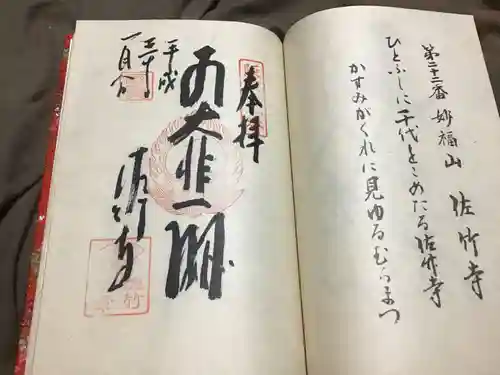 第二十二番 妙福山 佐竹寺
ひとふしに千代をこめたる佐竹寺
かすみがくれに見ゆるむらまつ
奉拝
大悲
平成
三十年
一月
佐竹寺